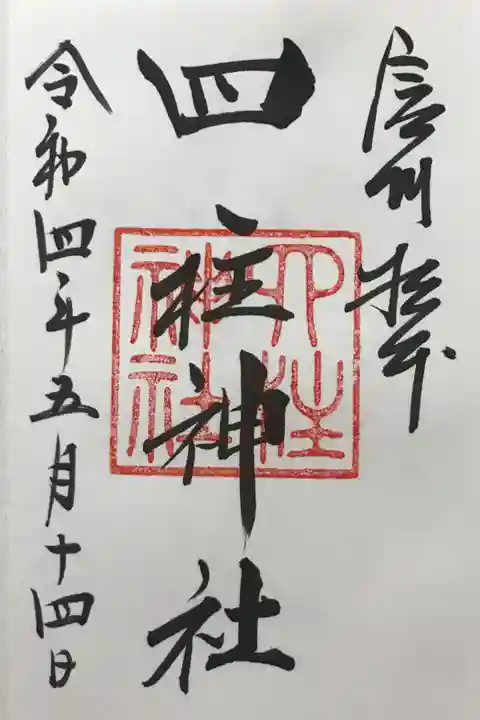 信州松本
四柱神社
四柱
神社
令和四年五月十四日